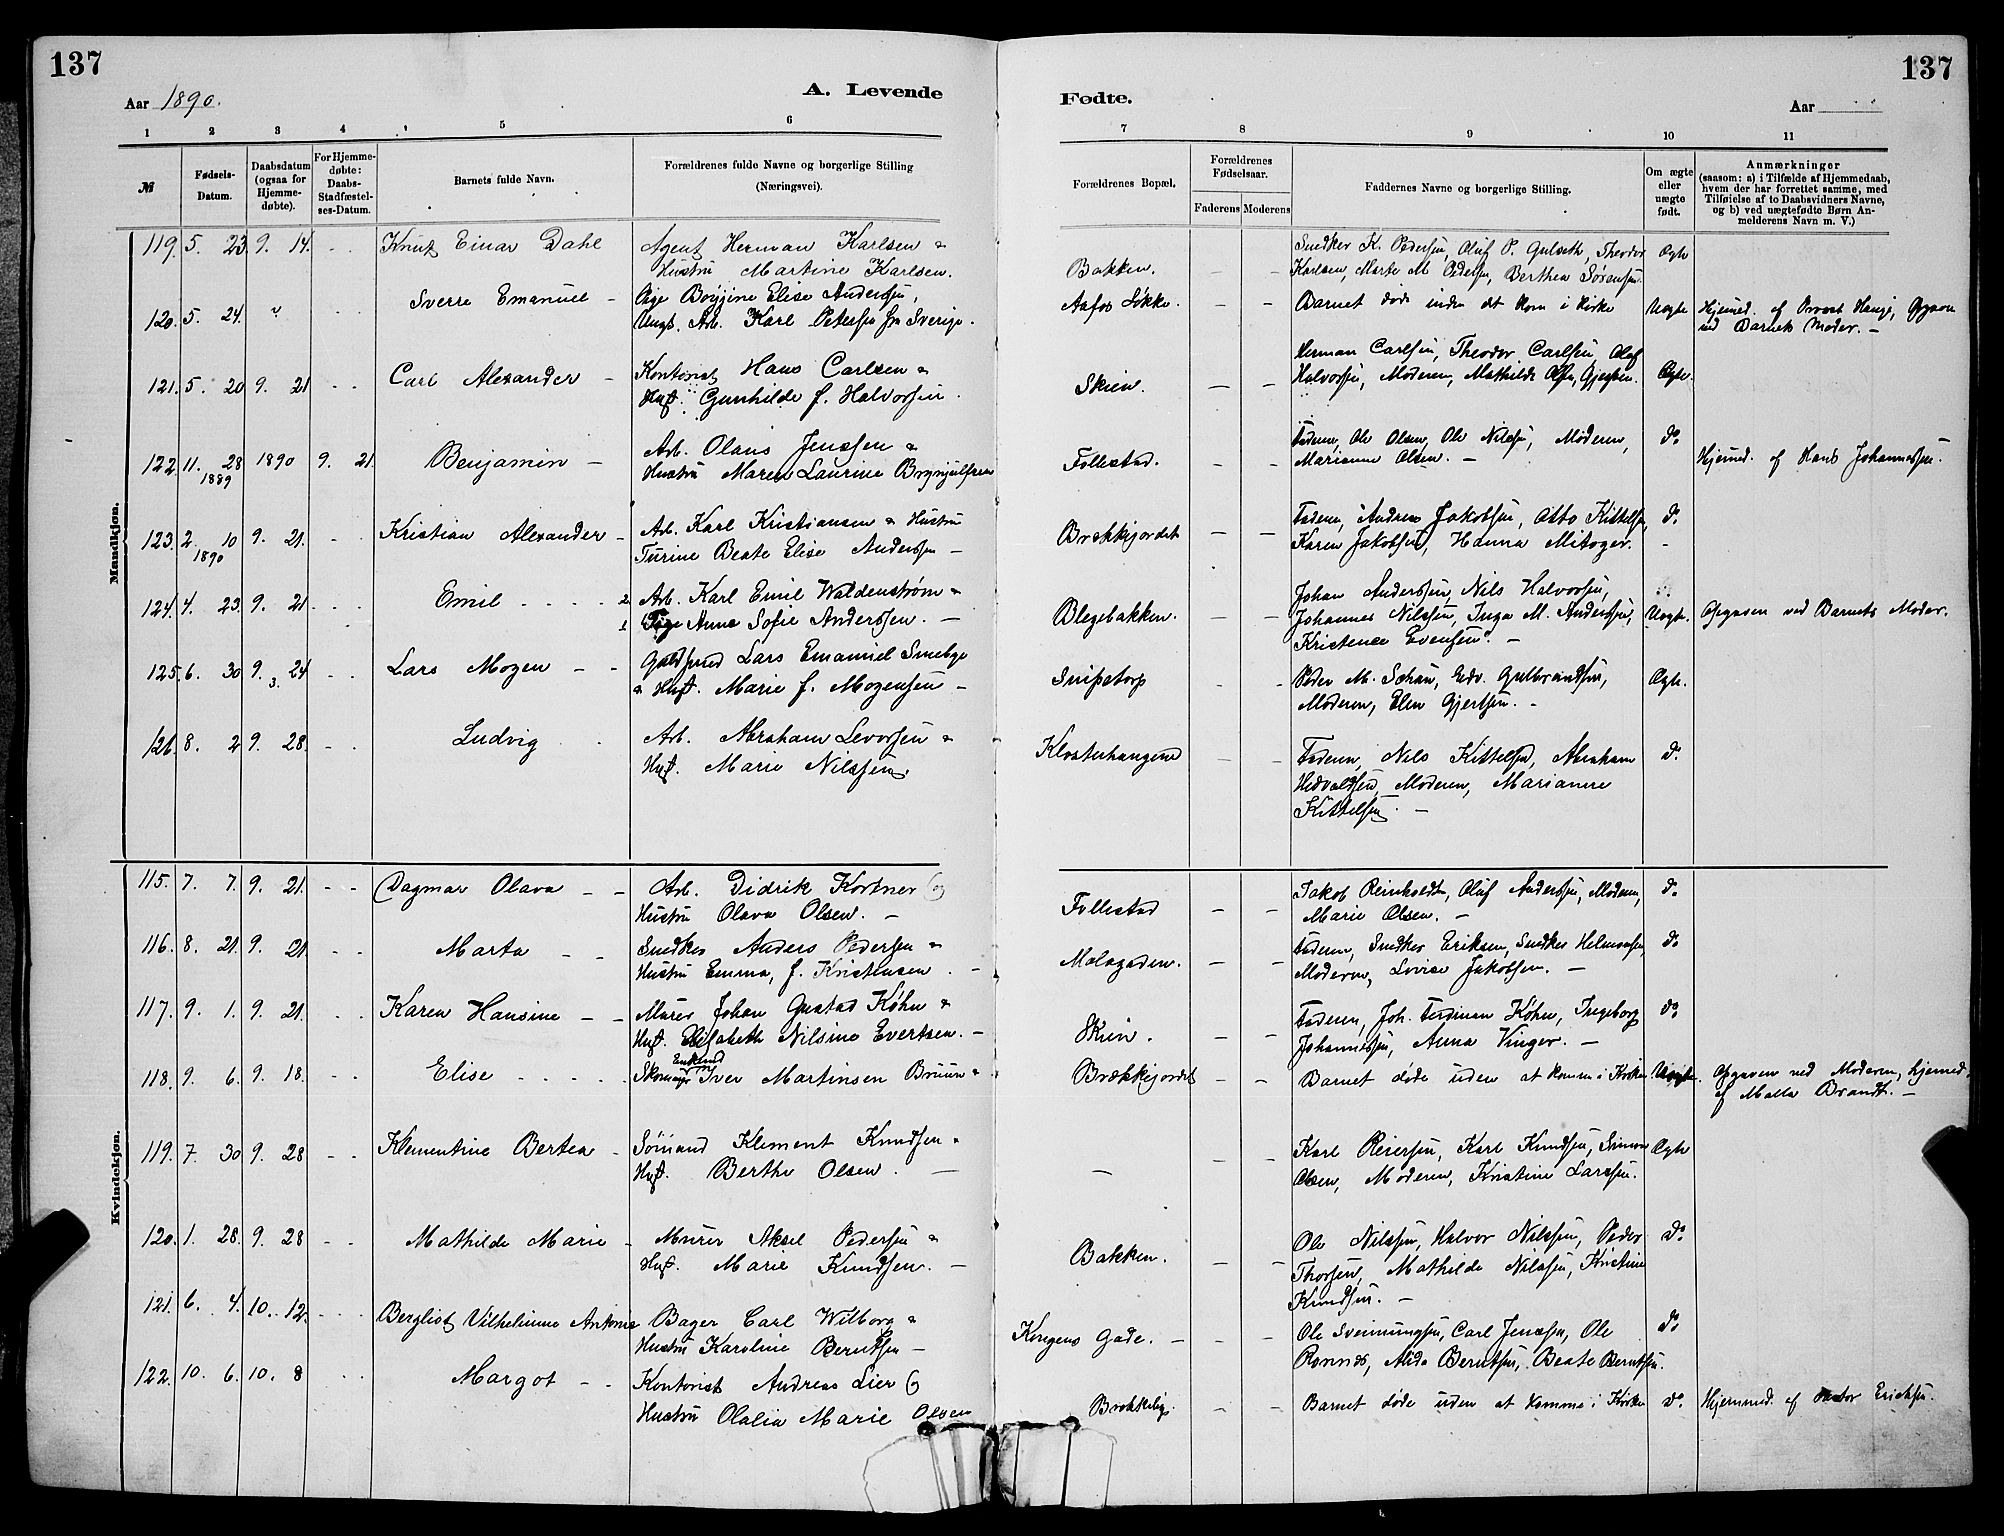 137
137
Aar 1890.
A. Levende
Fødte.
Aar
1 2 3 4 5 6 7 8 9 10 11
№
Fødsels-Datum.
Daabsdatum (ogsaa for Hjemme-døbte).
For Hjemme-døbte: Daabs-Stadfæstel-ses-Datum.
Barnets fulde Navn.
Forældrenes fulde Navne og borgerlige Stilling (Næringsvei).
Forældrenes Bopæl.
Forældrenes Fødselsaar.
Faderens Moderens
Faddernes Navne og borgerlige Stilling.
Om ægte eller uægte født.
Anmærkninger (saasom: a) i Tilfælde af Hjemmedaab, hvem der har forrettet samme, med Tilføielse af to Daabsvidners Navne, og b) ved uægtefødte Børn An-melderens Navn m. V.)
Mandkjøn.
119. 5. 23. 9. 14. - - Knut Einar Dahl Agent Herman Karlsen & Bakken. - - Snedker K. Pedersen, Oluf P. Gulseth, Theodor Ægte
Hustru Martine Karlsen. Karlsen, Marte M. Pedersen, Berthea Sørensen.
120. 5. 24. " - - Sverre Emanuel - Pige Elise Anderssen, Aafos Løkke. - - Barnet døde inden det kom i Kirke Uægte Hjemmed. af Hauge, Opgaven
Ungk. Arb. Karl Petersen fra Sverige. ved Barnets Moder. -
121. 5. 20 9. 21 - - Carl Alexander - Kontorist Hans Carlsen & Skien. - - Herman Carlsen, Theodor Carlsen, Oluf Ægte.
Hust. Gunhilde f. Halvorsen. Halvorsen, Moderen, Mathilde Gjertsen.
122. 11. 28 1889 1890 9. 21. Benjamin - Arb. Olaus Jenssen & Follestad. - - Faderen, Ole Olsen, Ole Nilssen, Moderen, do Hjemmed. af Hans Johannessen.
Hustru Maren Laurine Brynjulfsen Marianne Olsen. -
123. 2. 10 1890 9. 21. - - Kristian Alexander - Arb. Karl Kristiansen & Hustru Brækkejordet - - Faderen, Andreas Jakobsen, Otto Kittelsen, do
Turine Beate Elise Anderssen - Karen Jakobsen, Hanna Mitager. -
124. 4. 23. 9. 21. - - Emil - - - - 2 Arb. Karl Emil Waldenstrøm & Blegebakken. - - Johan Anderssen, Nils Halvorsen, Uægte. Opgaven ved Barnets Moder.
1 Pige Anne Sofie Anderssen. - Johannes Nilssen, Inga M. Anderssen,
Kristence Evensen. -
125. 6. 30 9. 24 3. - - Lars Mozen - - Guldsmed Lars Emanuel Smebye Snipetorp - - Peder M. Schau, Edv. Gulbrandsen, Ægte.
& Hust. Marie f. Mogensen - Moderen, Elen Gjertsen. -
126. 8. 2 9. 28. - - Ludvig - - Arb. Abraham Levorsen & Klosterhaugene - - Faderen, Nils Kittelsen, Abraham do
Hust. Marie Nilssen. Hedvaldsen, Moderen, Marianne
Kittelsen. -
Kvindekjøn.
115. 7. 7. 9. 21. - - Dagmar Olava - - Arb. Didrik Kortner og Follestad - - Jakob Reinholdt, Oluf Anderssen, Moderen, do
Hustru Olava Olsen. - Marie Olsen. -
116. 8. 21. 9. 21. - - Marta - - Snedker Anders Pedersen & Melagaden. - - Faderen, Snedker Eriksen, Snedker Helmersen, do
Hustru Emma, f. Kristensen. - Moderen, Lovise Jakobsen. -
117. 9. 1. 9. 21. - - Karen Hansine - - Murer Johan Gustad Køhn & Skien. - - Faderen, Joh. Ferdinan Køhn, Ingeborg do
Hust. Elisabeth Nilsine Evertsen. - Johannessen, Anna Vinger. -
118. 9. 6. 9. 18. Elise - - - - - Skomager Enkemd. Iver Martinsen Bruun & Brækkejordet - - Barnet døde uden at komme i Kirken Uægte. Opgaven ved Moderen, hjemmed.
af Malla Brandt. -
119. 7. 30 9. 28 - - Klementine Bertea - Sømand Klement Knudsen & - - - Karl Reiersen, Karl Knudsen, Simon Ægte
Hust. Berthe Olsen. - Olsen, Moderen, Kristine Larssen.
120. 1. 28. 9. 28 - - Mathilde Marie - Murer Aksel Pedersen & Bakken. - - Ole Nilssen, Halvor Nilssen, Peder do
Hust. Marie Knudsen. - Thorsen, Mathilde Nilssen, Kristine
Knudsen. -
121. 6. 4. 10. 12. - - Bergliot Vilhelmine Antonie Bager Carl Wilborg & Kongens Gade. - - - Ole Sveinungsen, Carl Jenssen, Ole do
Hustru Karoline Berntsen - Ronnes, Alida Berntsen, Beate Berntsen.
122. 10. 6. 10. 8 - - Margot - - Kontorist Andreas Lier og Brækkelig. - - Barnet døde uden at komme i Kirken do Hjemmed. af Erichsen.
Hustru Olalia Marie Olsen